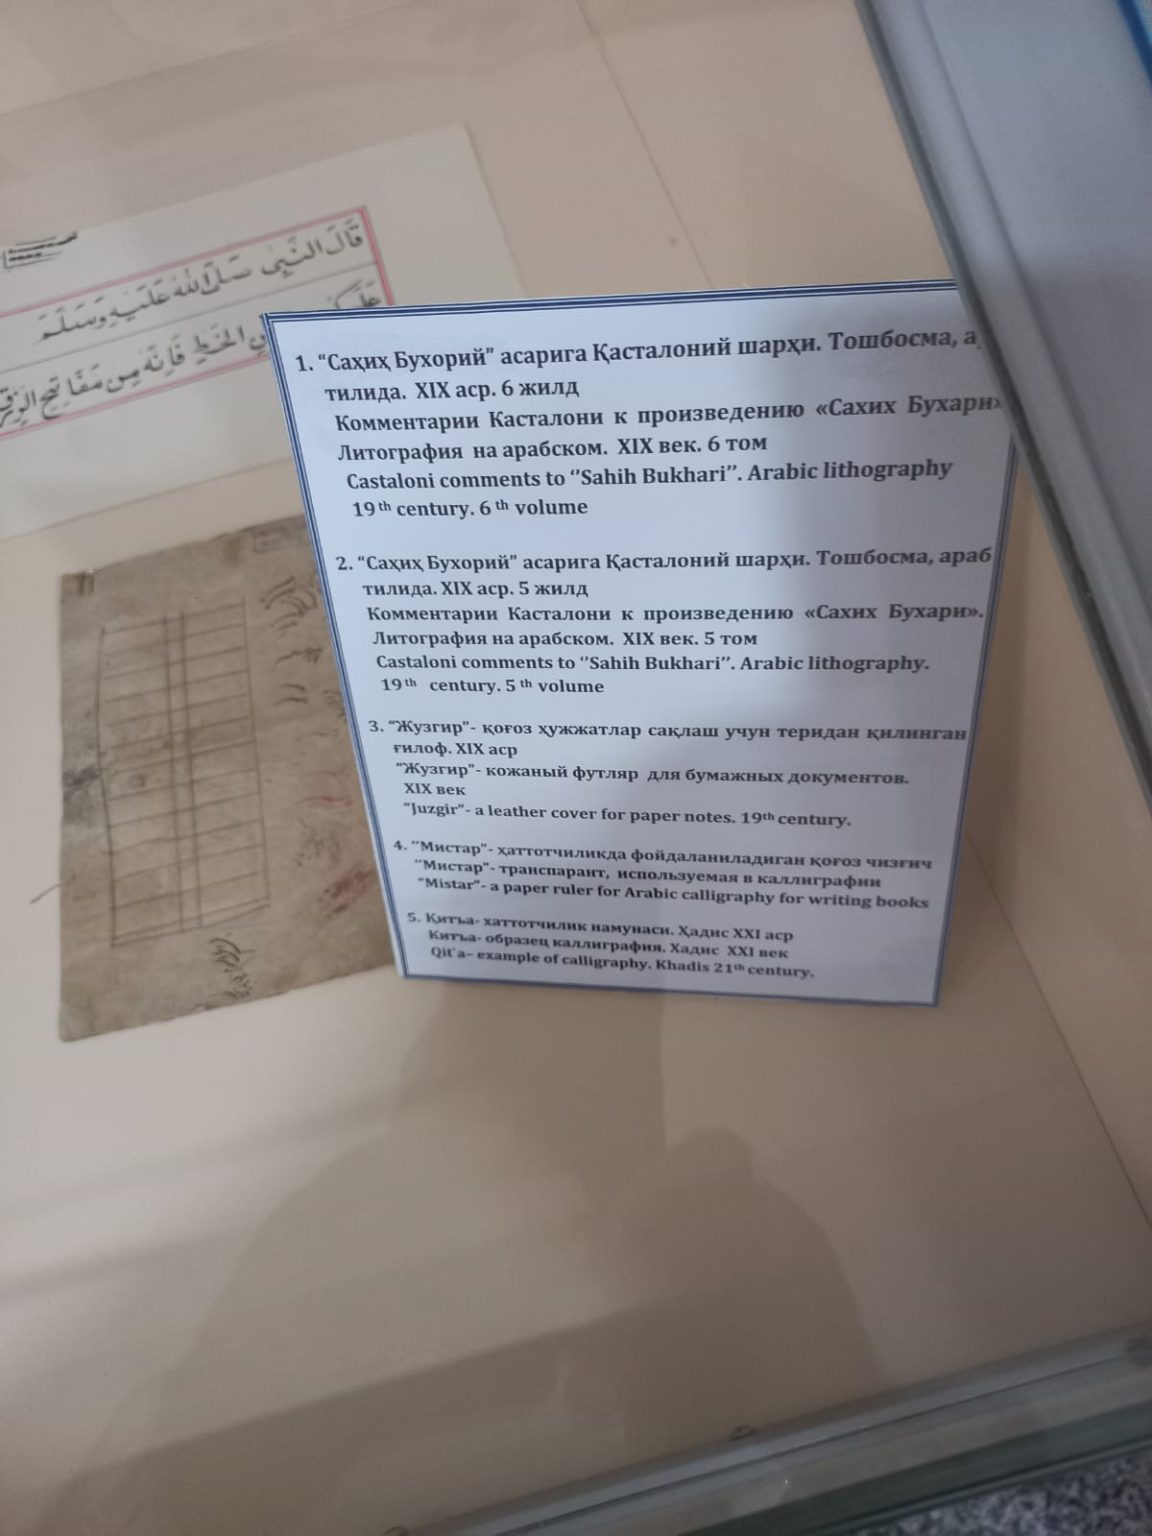 قَالَ النَّبِىُّ صَلَّى اللهُ عَلَيْهِ وَسَلَّمَ
الخَطِّ فَاِنَّهُ مِنْ مَفَاتِيحِ الرِّزْقِ
1. “Саҳиҳ Бухорий” асарига Қасталоний шарҳи. Тошбосма, а
тилида. XIX аср. 6 жилд
Комментарии Касталони к произведению «Сахих Бухари»
Литография на арабском. XIX век. 6 том
Castaloni comments to ‘’Sahih Bukhari’’. Arabic lithography
19th century. 6 th volume
2. “Саҳиҳ Бухорий” асарига Қасталоний шарҳи. Тошбосма, араб
тилида. XIX аср. 5 жилд
Комментарии Касталони к произведению «Сахих Бухари».
Литография на арабском. XIX век. 5 том
Castaloni comments to ‘’Sahih Bukhari’’. Arabic lithography.
19th century. 5 th volume
3. “Жузгир”- қоғоз ҳужжатлар сақлаш учун теридан қилинган
ғилоф. XIX аср
“Жузгир”- кожаный футляр для бумажных документов.
XIX век
“Juzgir”- a leather cover for paper notes. 19th century.
4. “Мистар”- ҳаттотчиликда фойдаланиладиган қоғоз чизғич
“Мистар”- транспарант, используемая в каллиграфии
“Mistar”- a paper ruler for Arabic calligraphy for writing books
5. Қитъа- хаттотчилик намунаси. Ҳадис XXI аср
Китъа- образец каллиграфия. Хадис XXI век
Qit’a– example of calligraphy. Khadis 21th century.